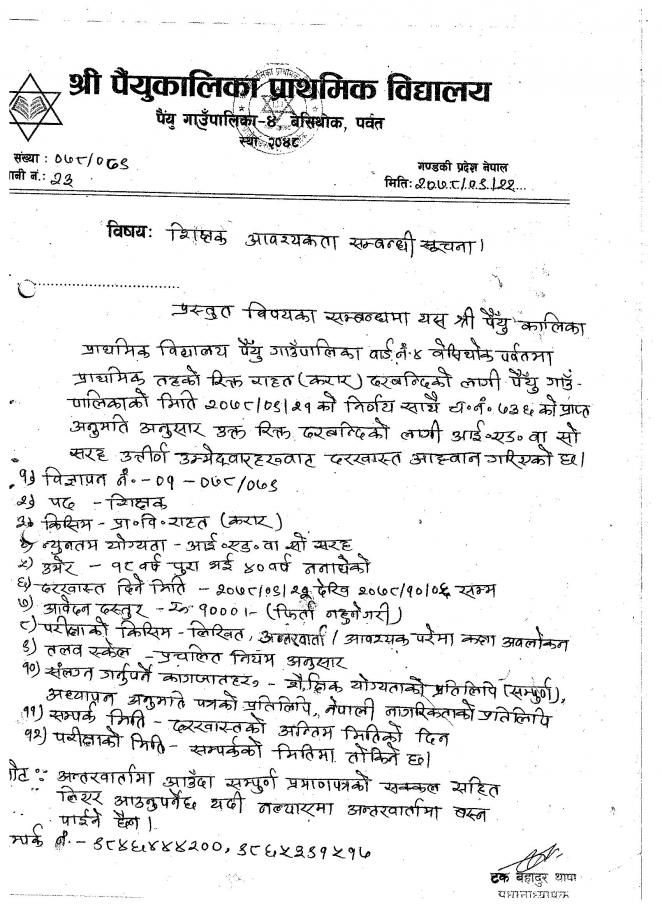 श्री पैंयुकालिका प्राथमिक विद्यालय
पैंयु गाउँपालिका-४, बेसिथोक, पर्वत
स्था २०४९
संख्या : ०७८/०७९
गण्डकी प्रदेश नेपाल
नी नं.: २३
मितिः २०७८/०९/२२
विषयः शिक्षक आवश्यकता सम्बन्धी सूचना।
प्रस्तुत विषयका सम्बन्धमा यस श्री पैंयु कालिका
प्राथमिक विद्यालय पैंयु गाउँपालिका वार्ड नं ४ बेसिथोक पर्वतमा
प्राथमिक तहको रिक्त राहत (करार) दरबन्दिको लागी पैंयु गाउँ-
पालिकाको मिति २०७८/०९/२१ को निर्णय साथै च.नं. ७३६ को प्राप्त
अनुमति अनुसार उक्त रिक्त दरबन्दिको लागी आई॰एड॰ वा सो
सरह उत्तीर्ण उम्मेदवारहरुबाट दरखास्त आह्वान गरिएको छ।
१) विज्ञापन नं.-०१-०७८/०७९
२) पद - शिक्षक
३) किसिम - प्रा॰वि॰राहत (करार)
४) न्युनतम योग्यता - आई॰एड॰ वा सो सरह
५) उमेर - १८ वर्ष पुरा भई ४० वर्ष ननाघेको
६) दरखास्त दिने मिति - २०७८/०९/२२ देखि २०७८/१०/०६ सम्म
७) आवेदन दस्तुर - रु १०००।- (फिर्ता नहुनेगरी)
८) परीक्षाको किसिम - लिखित, अन्तरवार्ता / आवश्यक परेमा कक्षा अवलोकन
९) तलव स्केल - प्रचलित नियम अनुसार
१०) संलग्न गर्नुपर्ने कागजातहरु - शैक्षिक योग्यताको प्रतिलिपि (सम्पुर्ण),
अध्यापन अनुमति पत्रको प्रतिलिपि, नेपाली नागरिकताको प्रतिलिपि
११) सम्पर्क मिति - दरखास्तको अन्तिम मितिको दिन
१२) परीक्षाको मिति - सम्पर्कको मितिमा तोकिने छ।
नोट : अन्तरवार्तामा आउँदा सम्पुर्ण प्रमाणपत्रको सक्कल सहित
लिएर आउनुपर्नेछ यदी नल्याएमा अन्तरवार्तामा बस्न
पाईने छैन।
म्पर्क नं. - ९८४६४४४२००, ९८६५२३१५१७
टक बहादुर थापा
प्रधानाध्यापक